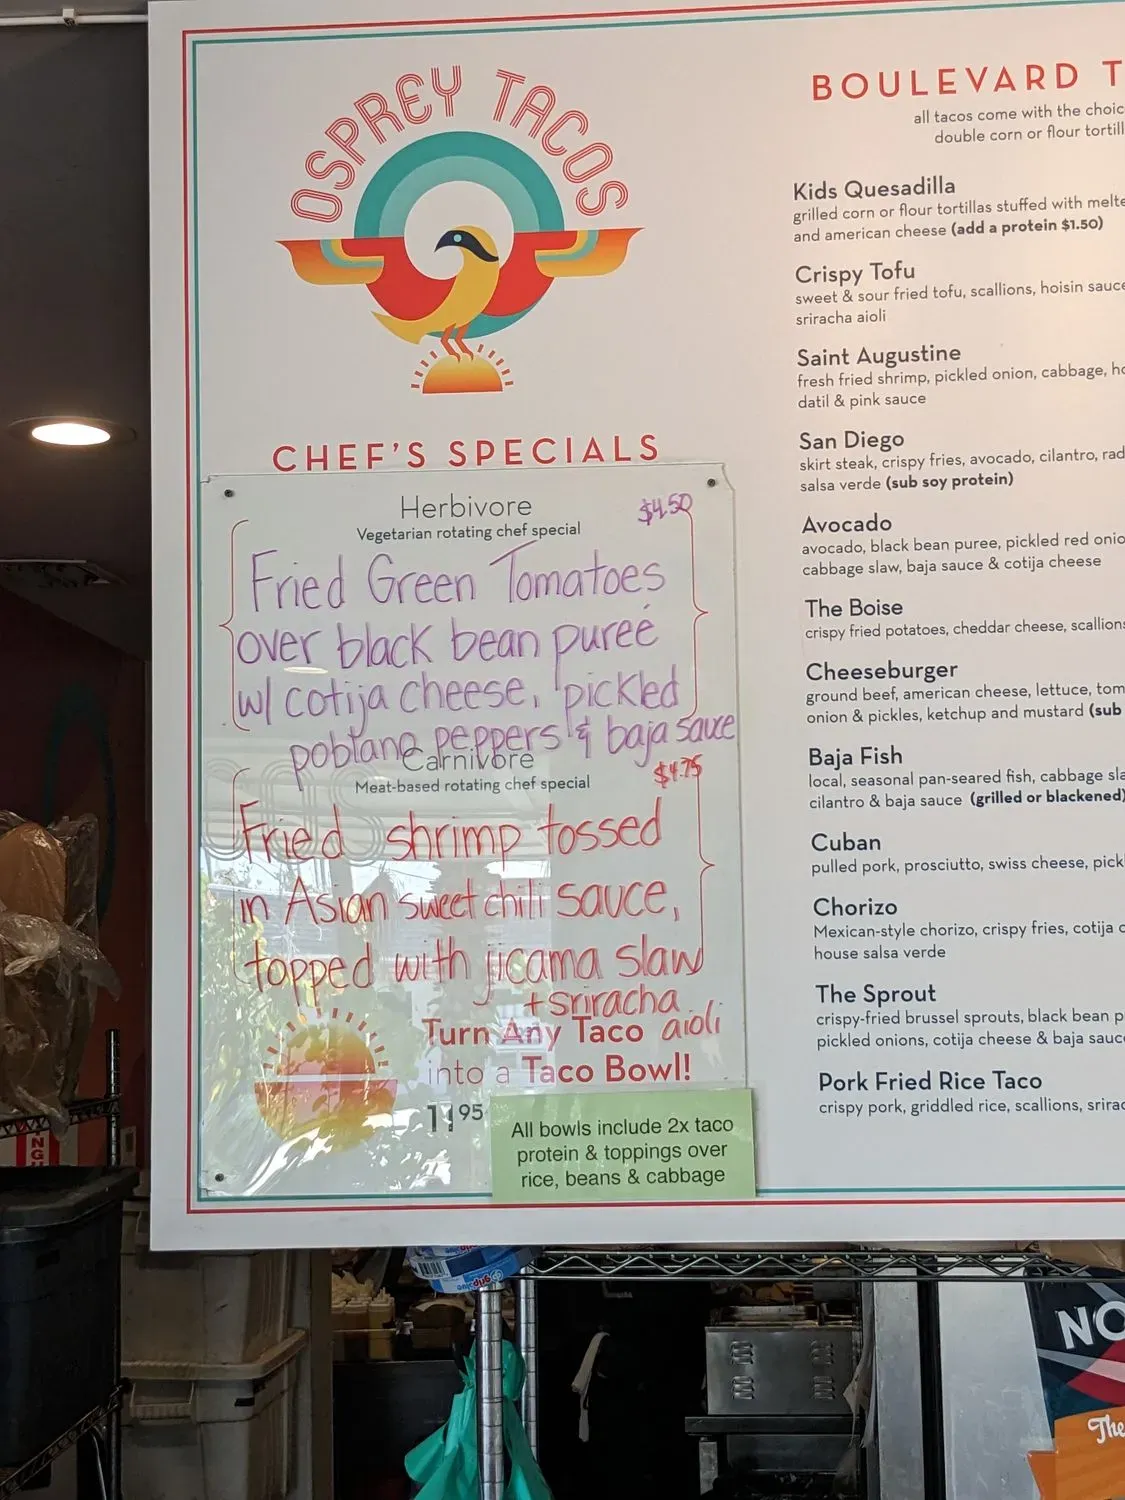 OSPREY TACOS
CHEF'S SPECIALS
Herbivore
$4.50
Vegetarian rotating chef special
Fried Green Tomatoes
over black bean pureé
w/ cotija cheese, pickled
poblano peppers & baja sauce
Carnivore
$4.75
Meat-based rotating chef special
Fried shrimp tossed
in Asian sweet chili sauce,
topped with jicama slaw
+ sriracha
aioli
Turn Any Taco
into a Taco Bowl!
11.95
All bowls include 2x taco
protein & toppings over
rice, beans & cabbage
BOULEVARD T
all tacos come with the
double corn or flour
Kids Quesadilla
grilled corn or flour tortillas stuffed with
and american cheese (add a protein $1.50)
Crispy Tofu
sweet & sour fried tofu, scallions, hoisin sauce
sriracha aioli
Saint Augustine
fresh fried shrimp, pickled onion, cabbage,
datil & pink sauce
San Diego
skirt steak, crispy fries, avocado, cilantro,
salsa verde (sub soy protein)
Avocado
avocado, black bean puree, pickled red
cabbage slaw, baja sauce & cotija cheese
The Boise
crispy fried potatoes, cheddar cheese, scallions
Cheeseburger
ground beef, american cheese, lettuce,
onion & pickles, ketchup and mustard (sub
Baja Fish
local, seasonal pan-seared fish, cabbage
cilantro & baja sauce (grilled or blackened)
Cuban
pulled pork, prosciutto, swiss cheese,
Chorizo
Mexican-style chorizo, crispy fries, cotija
house salsa verde
The Sprout
crispy-fried brussel sprouts, black bean
pickled onions, cotija cheese & baja
Pork Fried Rice Taco
crispy pork, griddled rice, scallions,
NO
The